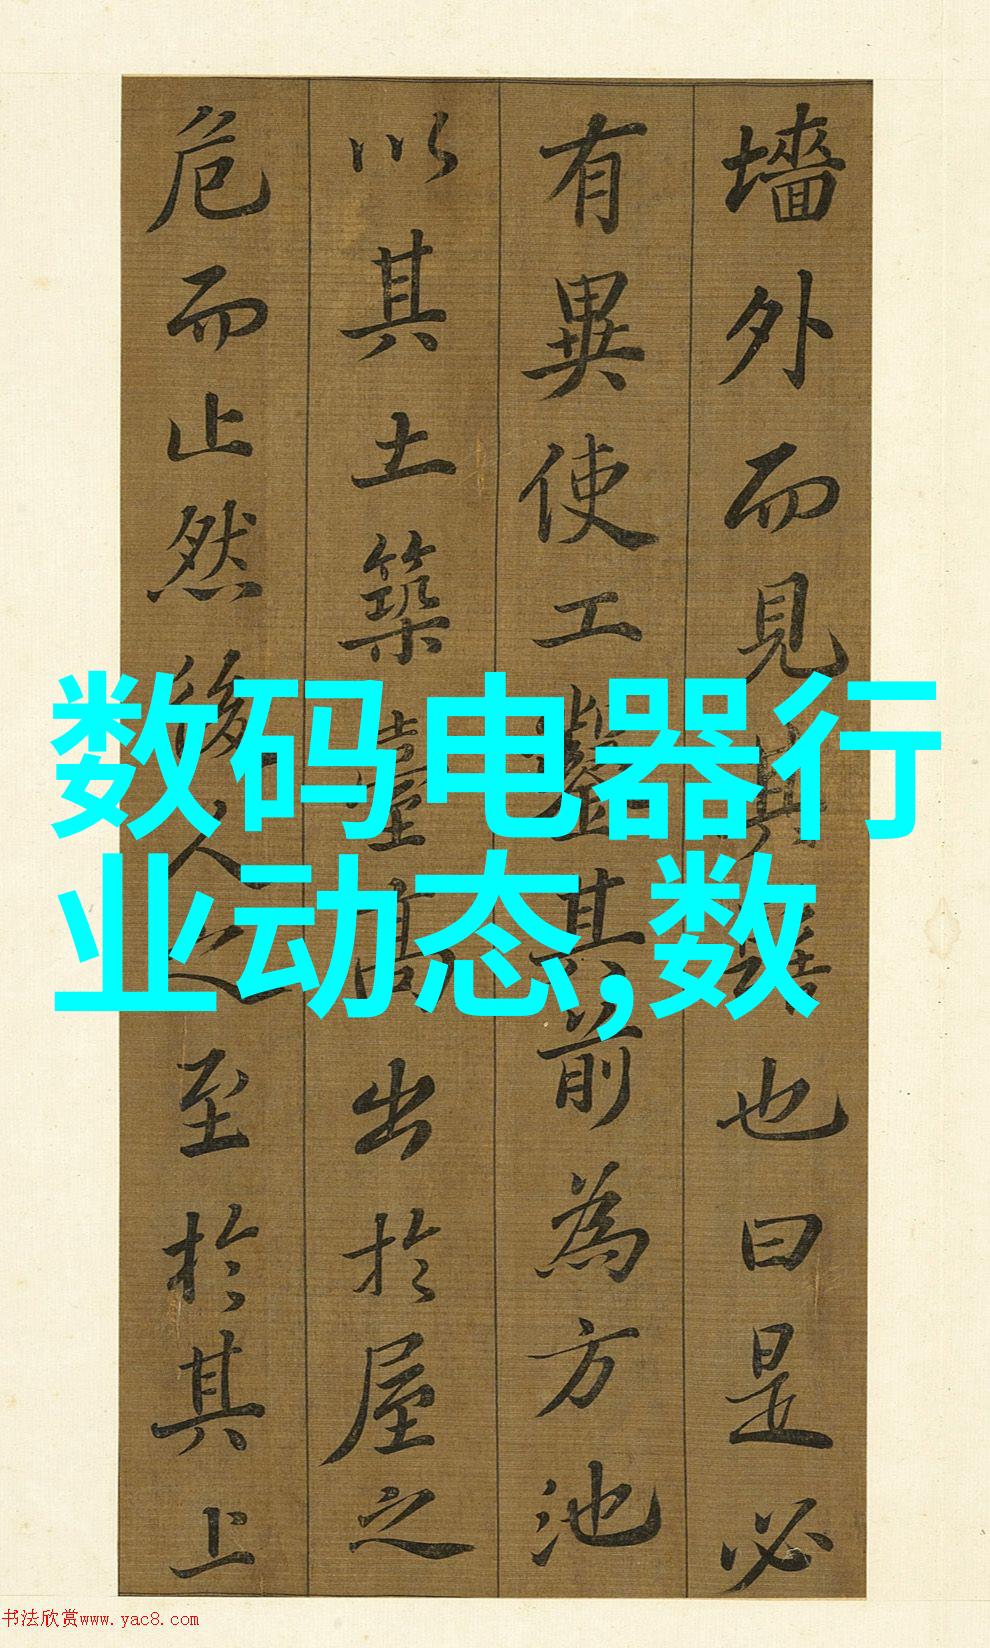 墻外而見其髻也曰是必
有異使工鑿其前為方池
以其土築臺高出於屋之
危而止然後人之至於其上
数码电器行
业动态,数
书法欣赏www.yac8.com